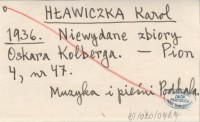 HŁAWICZKA Karol
1936. Niewydane zbiory
Oskara Kolberga. — Pion
4, nr 47.
Muzyka i pieśni Podhala.